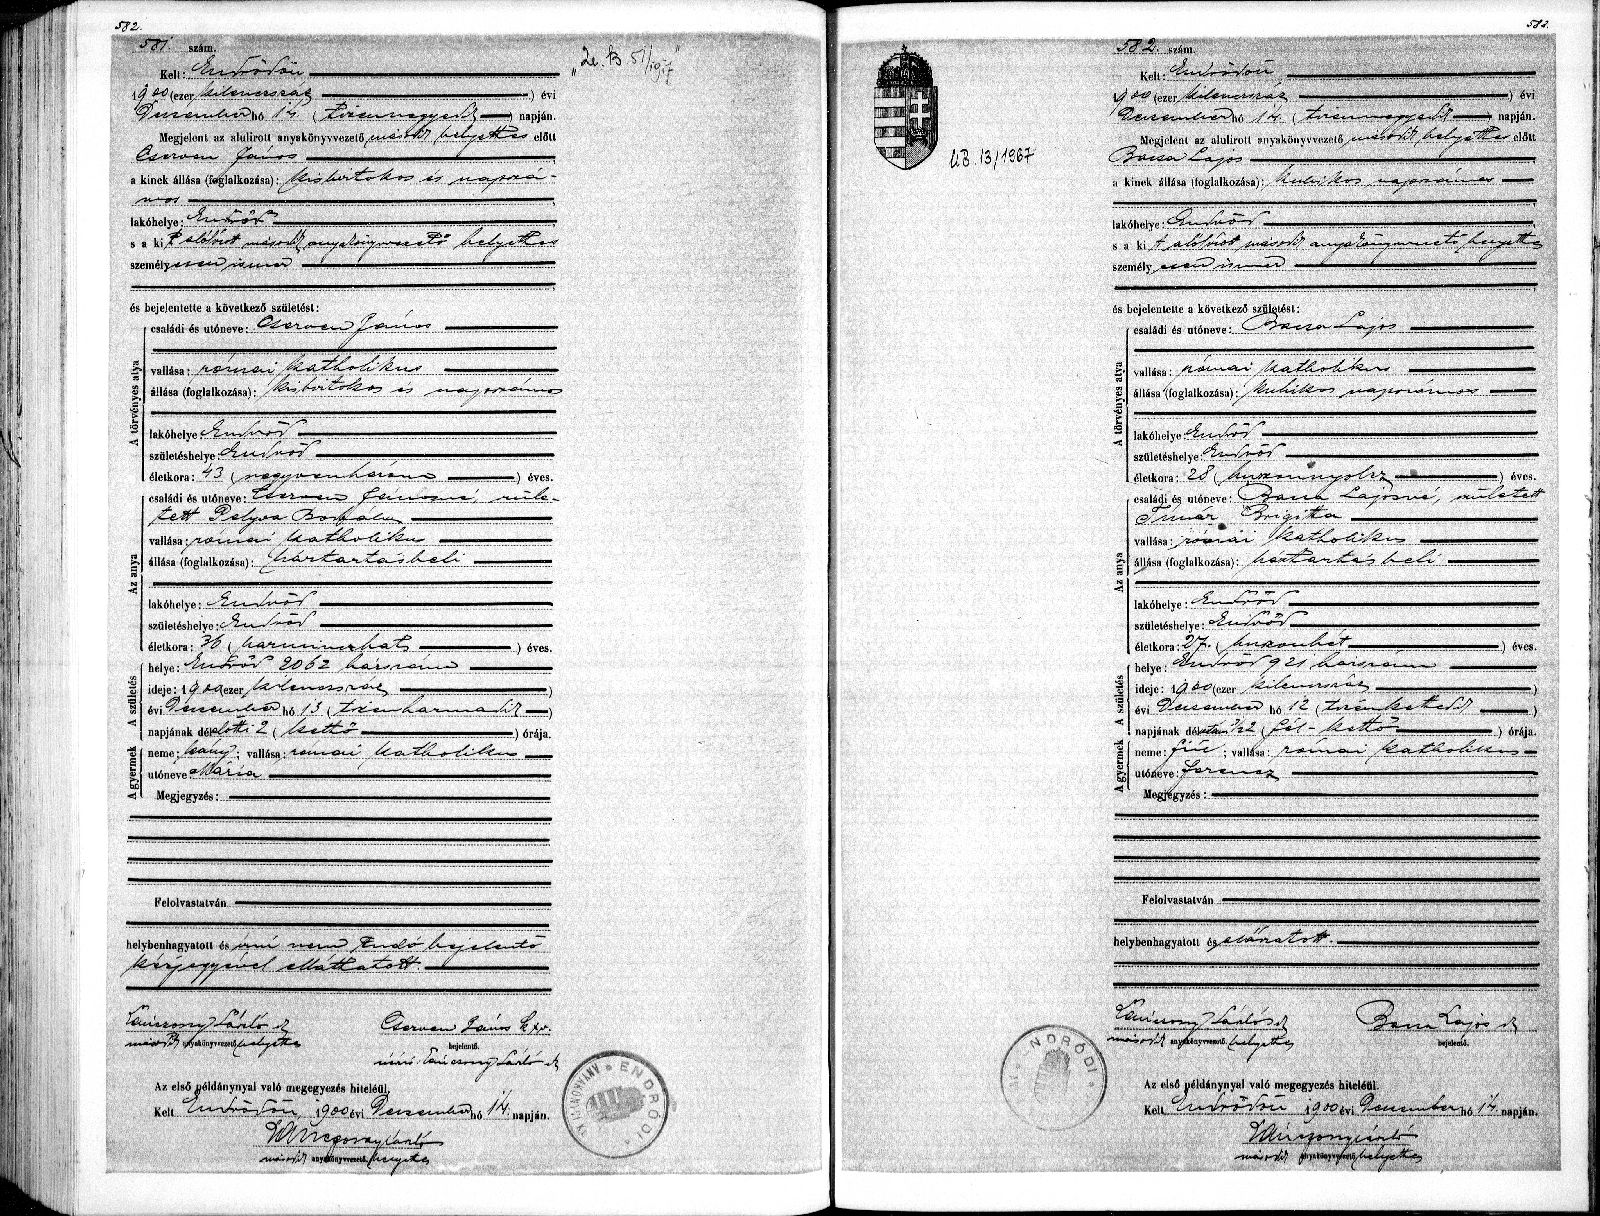 582.
581. szám.
Kelt: Endrődön
1900 (ezer kilencszáz) évi
December hó 14. (tizennegyedik) napján.
Megjelent az alulirott anyakönyvvezető második helyettes előtt
Cserven János
a kinek állása (foglalkozása): kisbirtokos és napszá-
mos
lakóhelye: Endrőd
s a kit alólirot második anyakönyvvezető helyettes
személyesen ismer
és bejelentette a következő születést:
A törvényes atya
családi és utóneve: Cserven János
vallása: római katholikus
állása (foglalkozása): kisbirtokos és napszámos
lakóhelye: Endrőd
születéshelye: Endrőd
életkora: 43 (negyvenhárom) éves.
Az anya
családi és utóneve: Cserven Jánosné szüle-
tett Pelyva Borbála
vallása: római katholikus
állása (foglalkozása): háztartásbeli
lakóhelye: Endrőd
születéshelye: Endrőd
életkora: 36 (harminczhat) éves.
A születés
helye: Endrőd 2062 házszám
ideje: 1900 (ezer kilencszáz)
évi December hó 13 (tizenharmadik)
napjának délelőtti 2 (kettő) órája.
A gyermek
neme: leány; vallása: római katholikus
utóneve: Mária
Megjegyzés:
Felolvastatván
helybenhagyatott és írni nem tudó bejelentő
kézjegyével elláttatott.
Lánczony László sk
második anyakönyvvezető helyettes
Cserven János k.x.v.
bejelentő.
Lánczony László sk
Az első példánynyal való megegyezés hiteléül.
Kelt Endrődön, 1900 évi December hó 14. napján.
Lánczony László
második anyakönyvvezető helyettes
ENDRŐDI
"Ze. B 51/1917"
583.
582. szám.
Kelt: Endrődön
1900 (ezer kilencszáz) évi
December hó 14. (tizennegyedik) napján.
Megjelent az alulirott anyakönyvvezető második helyettes előtt
Bacsa Lajos
a kinek állása (foglalkozása): kubikos napszámos
lakóhelye: Endrőd
s a kit alólirot második anyakönyvvezető helyettes
személyesen ismer
és bejelentette a következő születést:
A törvényes atya
családi és utóneve: Bacsa Lajos
vallása: római katholikus
állása (foglalkozása): kubikos napszámos
lakóhelye: Endrőd
születéshelye: Endrőd
életkora: 28 (huszonnyolcz) éves.
Az anya
családi és utóneve: Bacsa Lajosné, született
Tímár Brigitta
vallása: római katholikus
állása (foglalkozása): háztartásbeli
lakóhelye: Endrőd
születéshelye: Endrőd
életkora: 27. (huszonhét) éves.
A születés
helye: Endrőd 921 házszám
ideje: 1900 (ezer kilencszáz)
évi December hó 12 (tizenkettedik)
napjának délután 1/2 2 (fél-kettő) órája.
A gyermek
neme: fiú; vallása: római katholikus
utóneve: Ferencz
Megjegyzés:
Felolvastatván
helybenhagyatott és aláíratott.
Lánczony László sk
második anyakönyvvezető helyettes
Bacsa Lajos sk
bejelentő.
Az első példánynyal való megegyezés hiteléül.
Kelt Endrődön 1900 évi December hó 14 napján.
Lánczony László
második anyakönyvvezető helyettes
ENDRŐDI
U.B. 13/1967